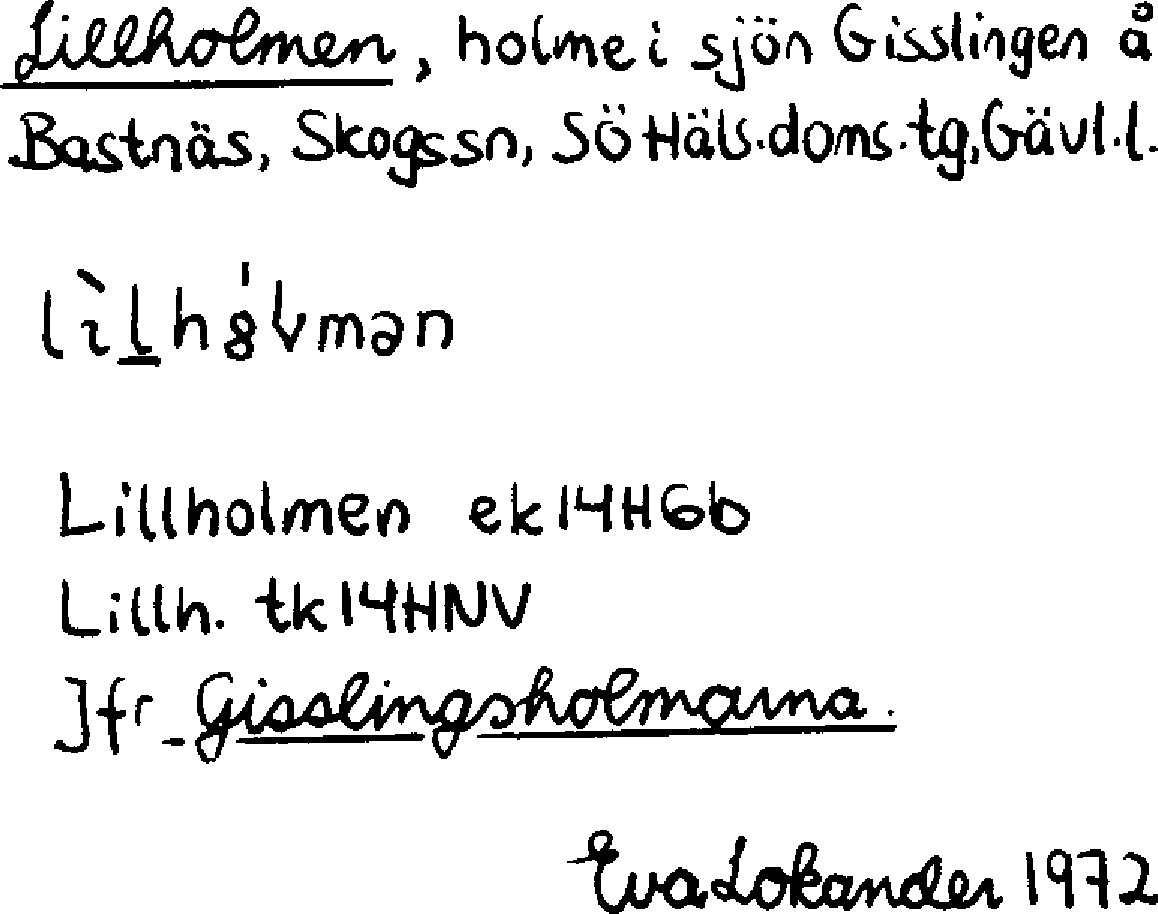 Lillholmen, holme i sjön Gisslingen å
Bastnäs, Skogssn, Sö Häls.doms.tg, Gävl.l.
Lillholmen ek14H6b
Lillh. tk14HNV
Jfr Gisslingsholmarna.
Eva Lokander 1972